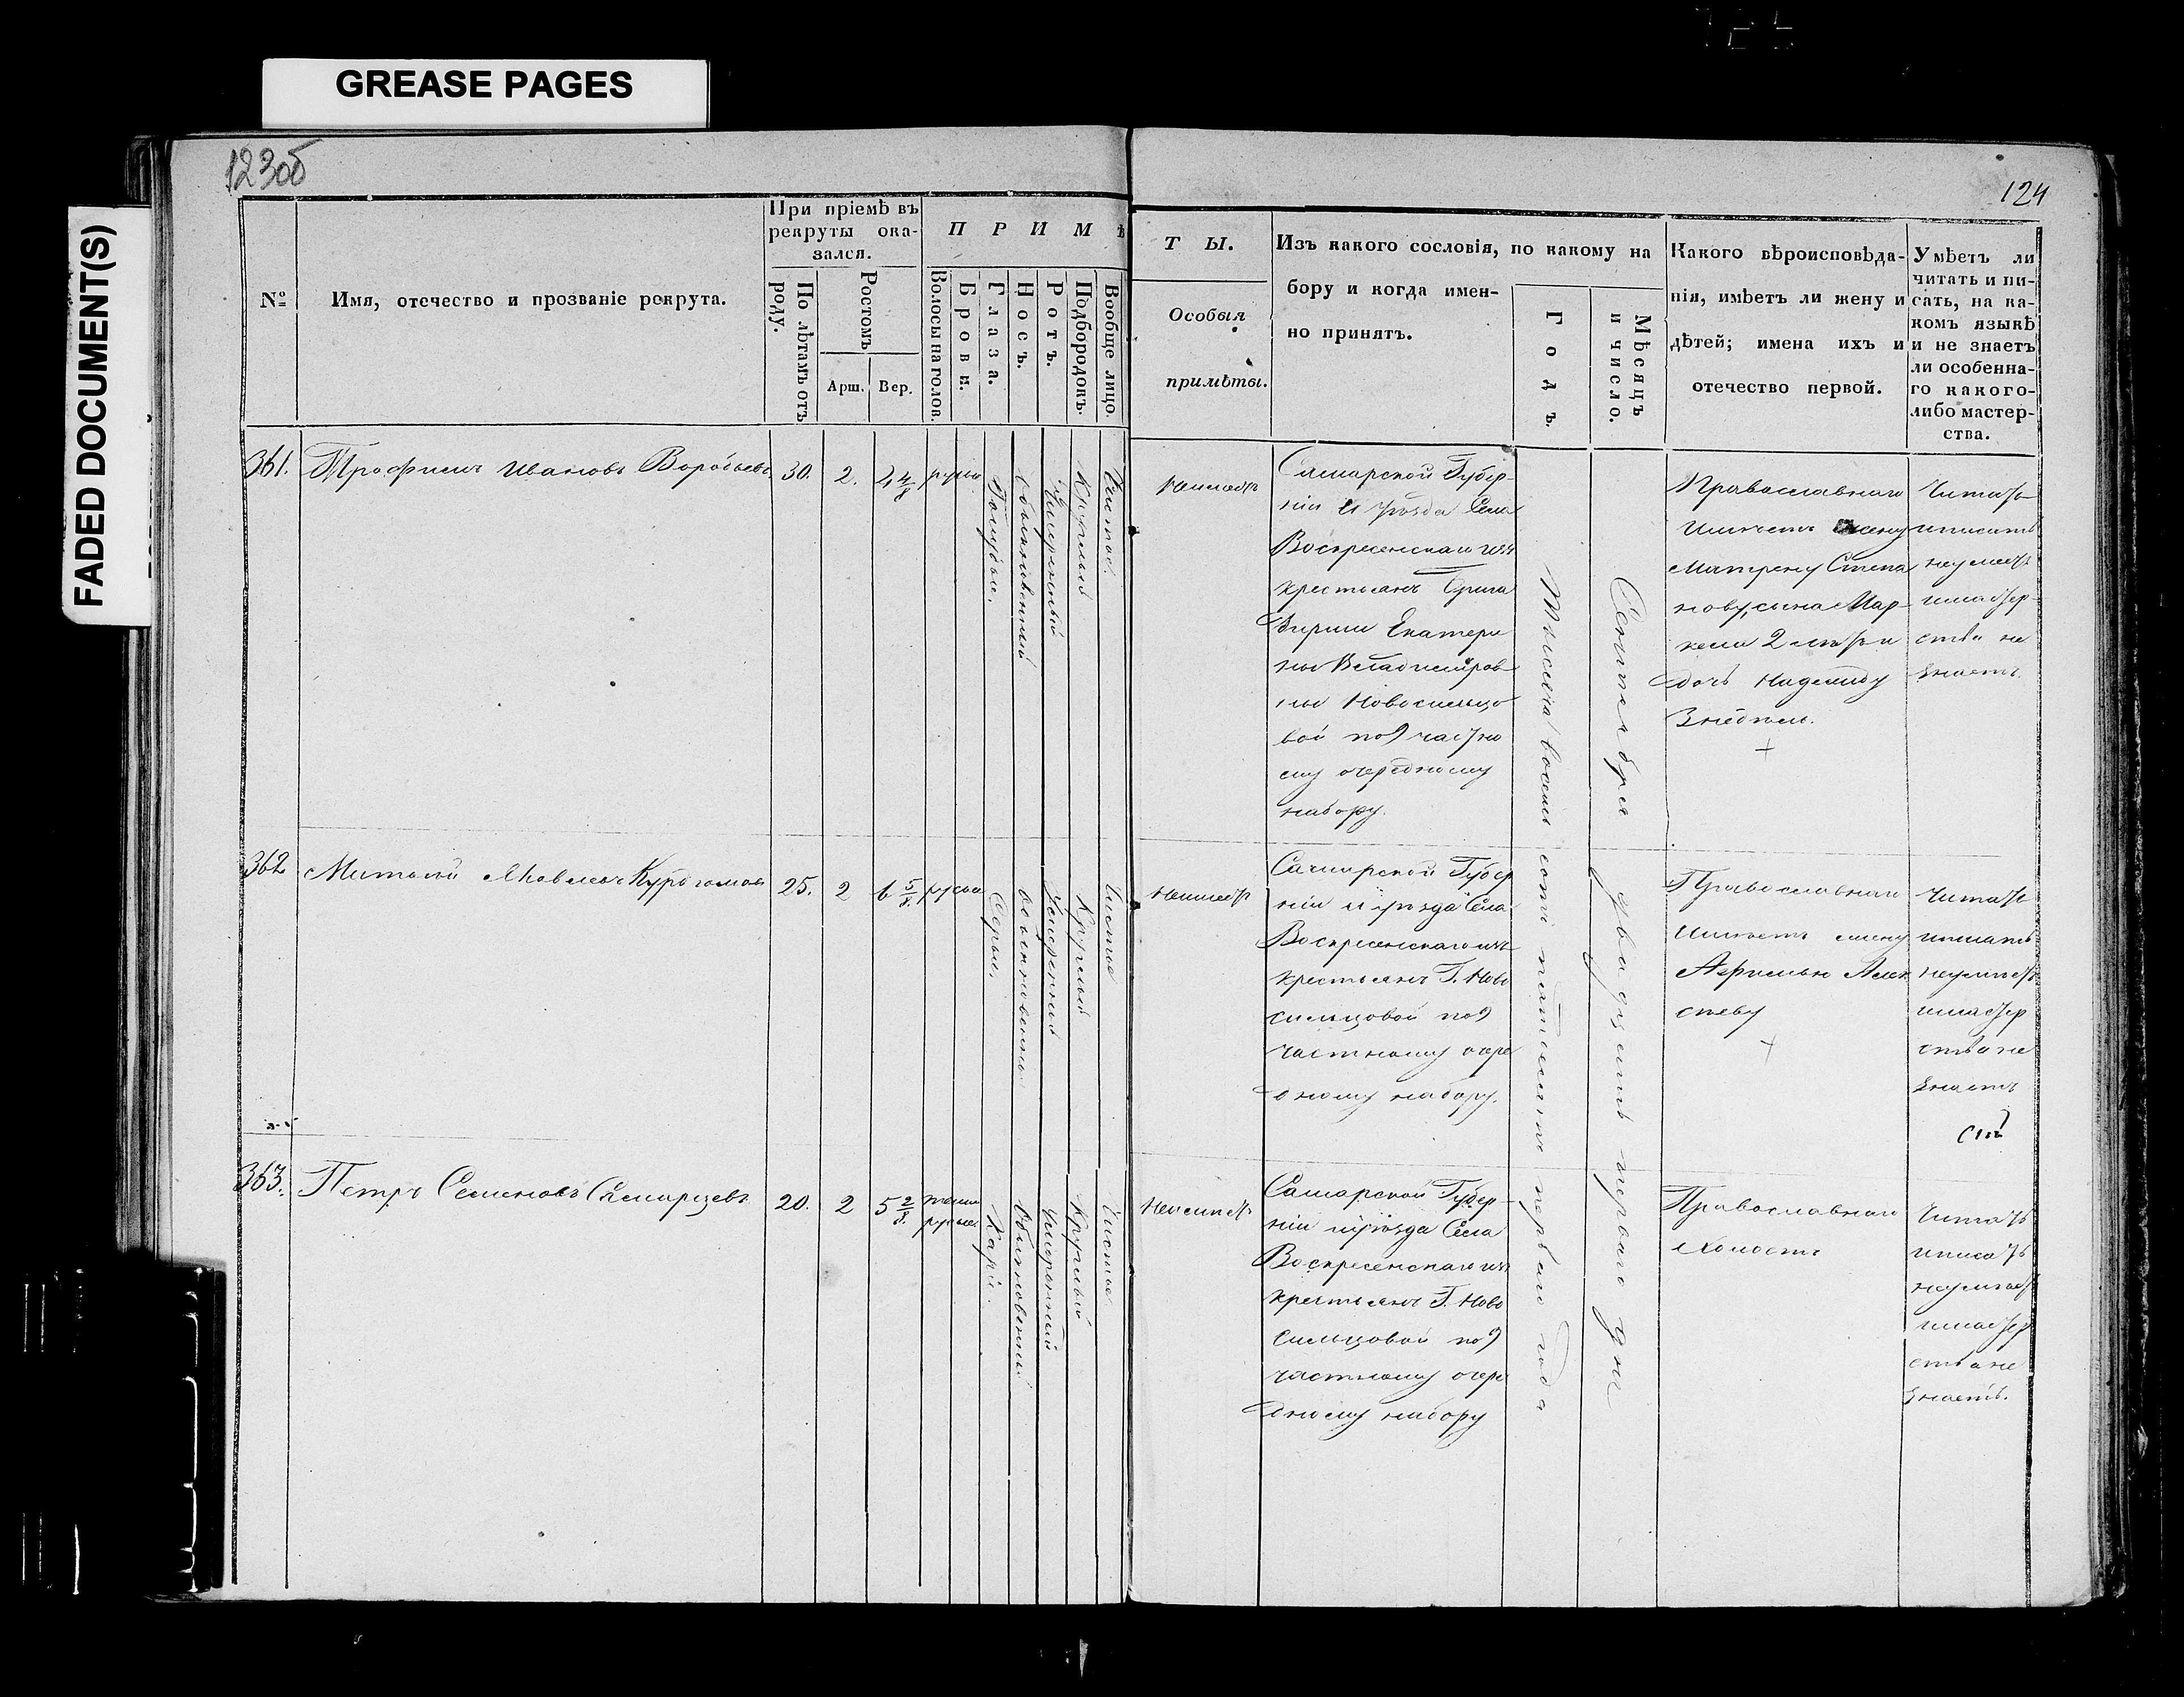 GREASE PAGES
FADED DOCUMENT(S)
123об
124
№
Имя, отечество и прозваніе рекрута.
При пріемѣ въ
рекруты ока-
зался.
По лѣтамъ отъ
роду.
Ростомъ
Арш.
Вер.
ПРИМѢ
Волосы на голов.
Брови.
Глаза.
Носъ.
Ротъ.
Подбородокъ.
Вообще лицо.
ТЫ.
Особыя
примѣты.
Изъ какого сословія, по какому на
бору и когда имен-
но принятъ.
Годъ.
Мѣсяцъ
и число.
Какого вѣроисповѣда-
нія, имѣетъ ли жену и
дѣтей; имена ихъ и
отечество первой.
Умѣетъ ли
читать и пи-
сать, на ка-
комъ языкѣ
и не знаетъ
ли особенна-
го какого-
либо мастер-
ства.
361.
Трофимъ Ивановъ Воробьевъ
30.
2.
4 4/8
русы
Голубые.
обыкновенный
Умеренный
Круглый
Чистое.
Неимеетъ
Самарской Губер-
ніи и уѣзда Села
Воскресенскаго изъ
крестьянъ
Екатери
ны Владиміров
ны Новосильцо
вой по 9 частно
му очередному
набору.
Тысяча восемь сотъ пятьдесятъ перваго года
Сентября двадцать перваго дня
Православнаго
имѣетъ жену
Матрену Степа
нову, сына Мар
кела 2 лѣтъ и
дочь Надежду
3 недѣли.
Читать
и писать
неумеетъ
и мастер-
ства не
знаетъ.
362
Яковлевъ
25.
2
5/8.
русы
Серые.
обыкновенной
Умеренной
Круглый
Чистое
Неимеетъ
Самарской Губер
ніи и уѣзда Села
Воскресенскаго изъ
крестьянъ Г. Ново
сильцовой по 9
частному очере
дному набору.
Православнаго
Имѣетъ жену
Алек
сѣеву
Читать
и писать
неумѣетъ
и мастер
ства не
знаетъ
363.
Петръ Семеновъ Самарцевъ
20.
2
5 2/8.
темно
русые
Каріе.
Обыкновенный
умеренный
Круглый
Чистое
Неимѣетъ
Самарской Губер-
ніи и уѣзда Села
Воскресенскаго изъ
крестьянъ Г. Ново
сильцовой по 9
частному очере
дному набору
Православнаго
Холостъ
Читать
и писать
неумѣетъ
и мастер
ства не
знаетъ.